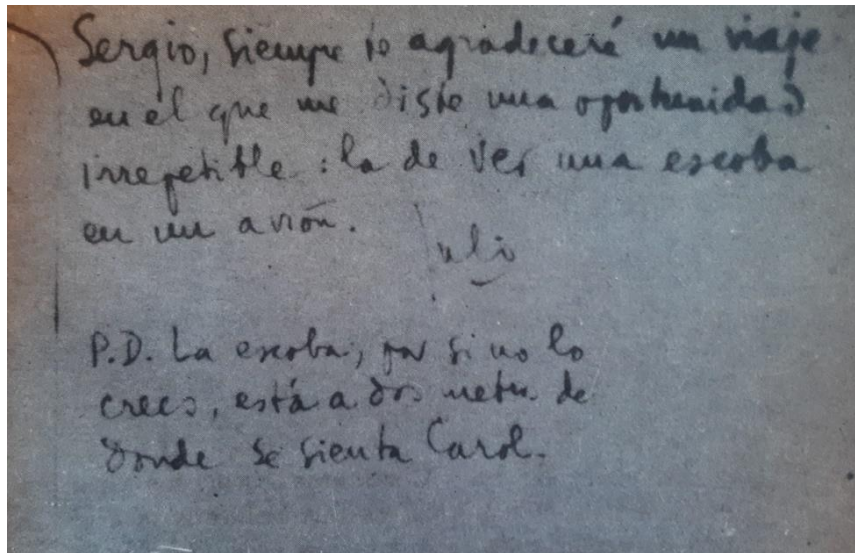 Sergio, siempre te agradeceré un viaje
en el que me diste una oportunidad
irrepetible: la de ver una escoba
en un avión.
Julio
P.D. La escoba, por si no lo
crees, está a dos metros de
donde se sienta Carol.